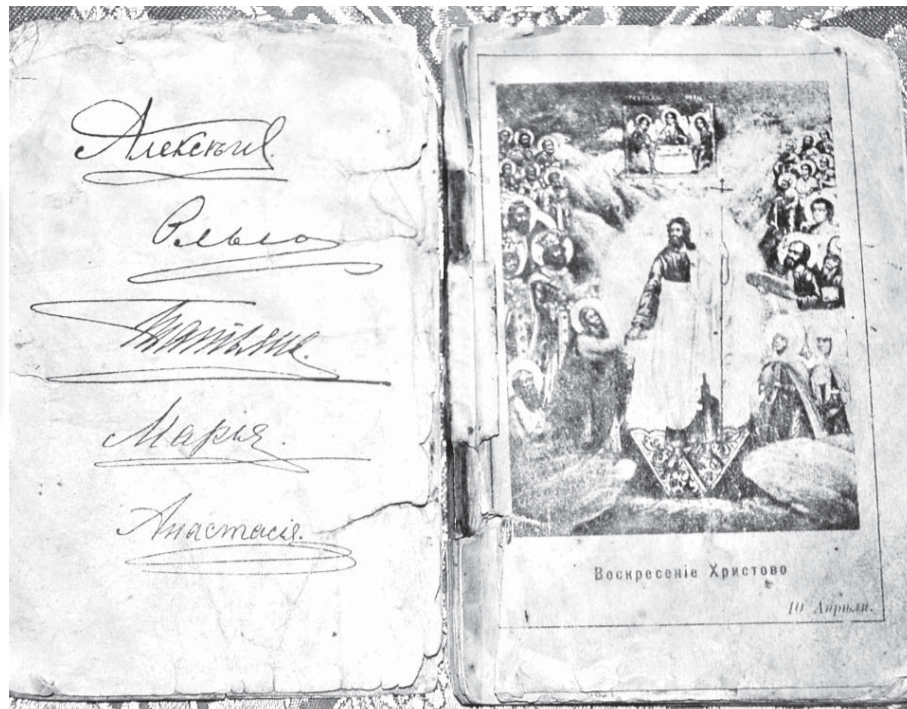 Алексѣй.
Ольга
Татьяна.
Марья.
Анастасія.
Воскресеніе Христово
10 Апрѣля.